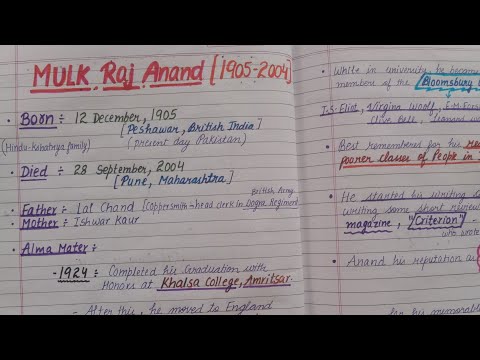 MULK Raj Anand [1905-2004]
• Born ÷ 12 December, 1905
[Peshawar, British India]
(Hindu-Kshatriya family) (present day Pakistan)
• Died ÷ 28 September, 2004
[Pune, Maharashtra]
British Army
• Father ÷ Lal Chand [Coppersmith → head clerk in Dogra Regiment
• Mother ÷ Ishwar Kaur
• Alma Mater ÷
-1924 ÷ Completed his Graduation with
Honors at Khalsa College, Amritsar.
- After this, he moved to England
• While in university, he became
member of the Bloomsbury
T.S. Eliot, Virginia Woolf, E.M.
Clive Bell, Leonard
• Best remembered for his
poorer classes of People in
• He started his writing
writing some short reviews
magazine, "Criterion"
who
• Anand his reputation as
for his memorable